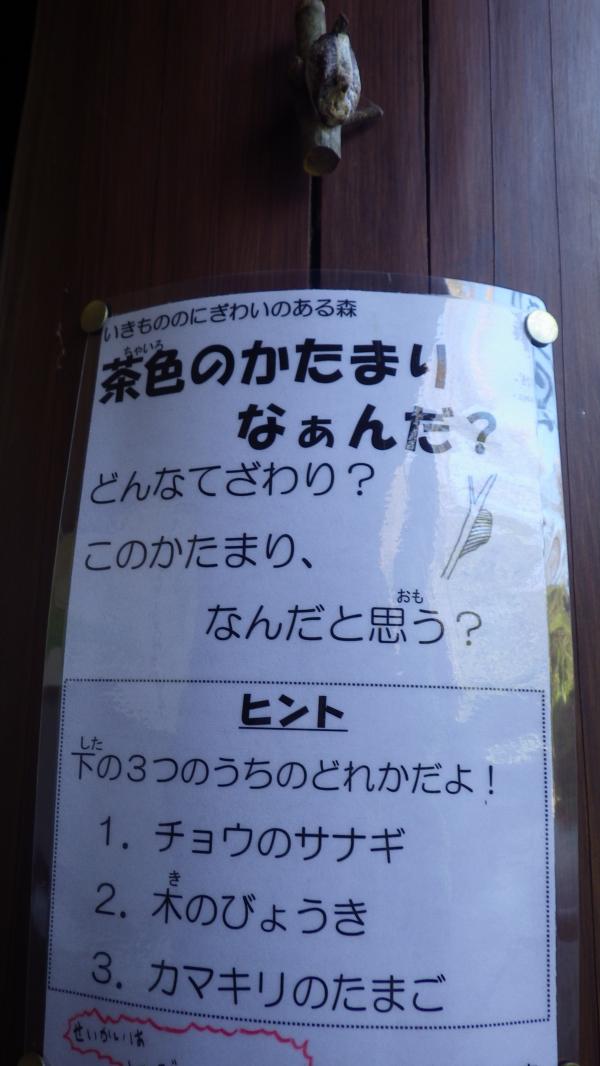 いきもののにぎわいのある森
茶色のかたまり
なぁんだ？
どんなてざわり？
このかたまり、
なんだと思う？
ヒント
下の３つのうちのどれかだよ！
1. チョウのサナギ
2. 木のびょうき
3. カマキリのたまご
せいかいは